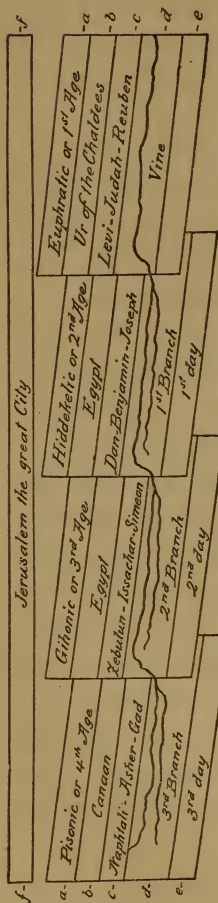 f-
Jerusalem the great City
-f
a-
b-
c-
d-
e-
Pisonic or 4th Age
Canaan
Naphtali-Asher-Gad
3rd Branch
3rd day
Gihonic or 3rd Age
Egypt
Zebulun-Issachar-Simeon
2nd Branch
2nd day
Hiddekelic or 2nd Age
Egypt
Dan-Benjamin-Joseph
1st Branch
1st day
Euphratic or 1st Age
Ur of the Chaldees
Levi-Judah-Reuben
Vine
-a
-b
-c
-d
-e